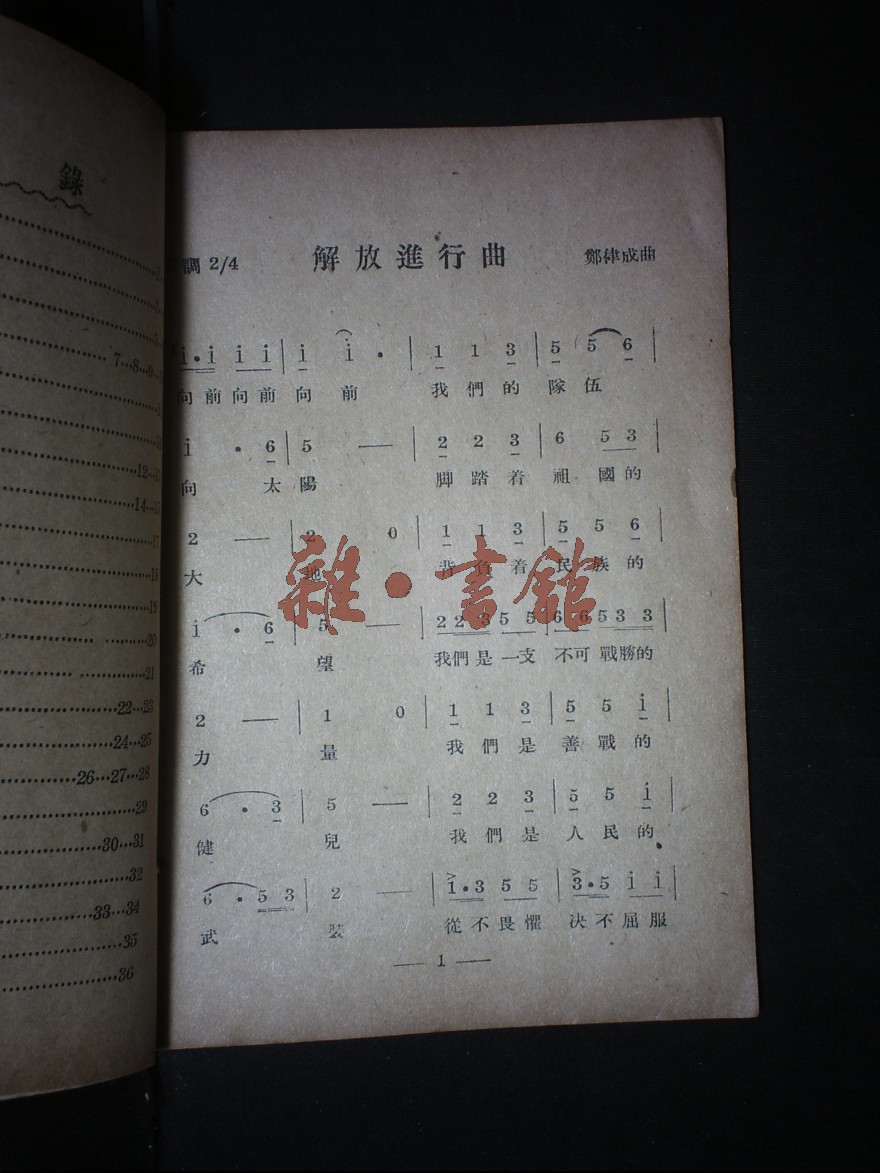 錄
7…8…9
14
17
18
19
20
21
22…23
24…25
26…27…28
29
30…31
32
33…34
35
36
調 2/4 解放進行曲 鄭律成曲
i·i i i | i i · | 1 1 3 | 5 5 6 |
向前向前 向 前 我們的 隊伍
i · 6 | 5 — | 2 2 3 | 6 5 3 |
向 太陽 脚踏着 祖國的
2 — | 2 0 | 1 1 3 | 5 5 6 |
大 地 背負着 民族的
i · 6 | 5 — | 2 2 3 5 5 | 6 6 5 3 3 |
希 望 我們是一支 不可戰勝的
2 — | 1 0 | 1 1 3 | 5 5 i |
力 量 我們是 善戰的
6 · 3 | 5 — | 2 2 3 | 5 5 i |
健 兒 我們是 人民的
6 · 5 3 | 2 — | 1·3 5 5 | 3·5 i i |
武 裝 從不畏懼 决不屈服
— 1 —
雜·書館